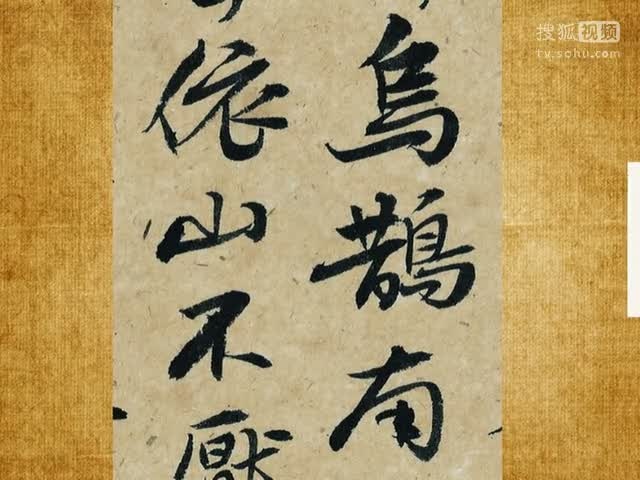 搜狐视频
tv.sohu.com
烏鵲南
依山不厭